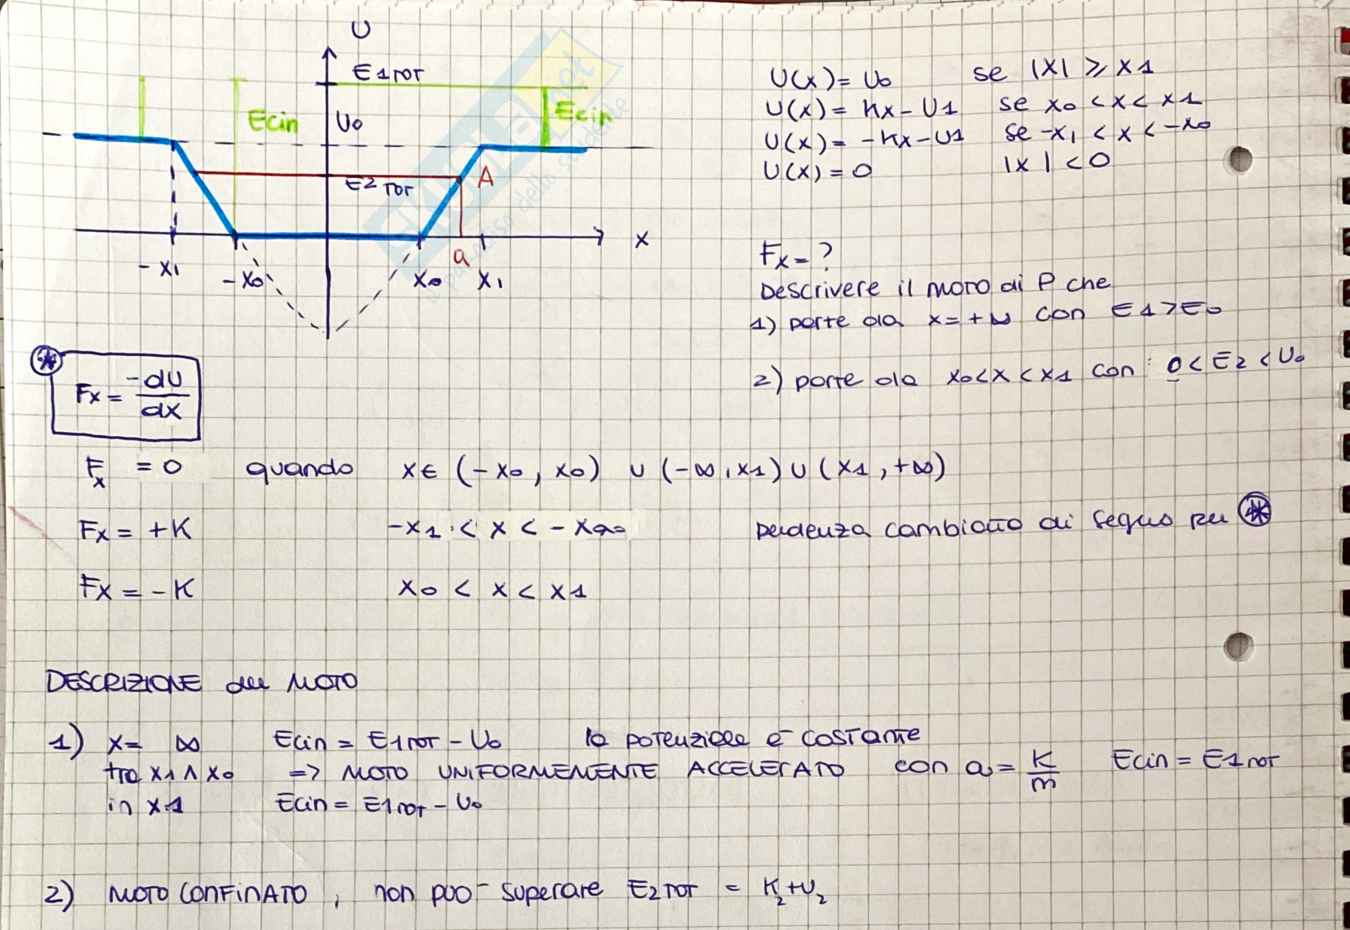 U
E1TOT
Ecin
U0
Ecin
E2 TOT
A
a
x
-x1
-x0
x0
x1
U(x) = U0 se |x| ≥ x1
U(x) = Kx - U1 se x0 < x < x1
U(x) = -Kx - U1 se -x1 < x < -x0
U(x) = 0 |x| < 0
Fx = ?
Descrivere il moto di P che
1) parte da x = +∞ con E1 > E0
2) parte da x0 < x < x1 con 0 < E2 < U0
* Fx = -dU/dx
Fx = 0 quando x ∈ (-x0, x0) ∪ (-∞, x1) ∪ (x1, +∞)
Fx = +K -x1 < x < -x0 pendenza cambiata di segno per *
Fx = -K x0 < x < x1
DESCRIZIONE del MOTO
1) x = ∞ Ecin = E1TOT - U0 la potenziale è costante
tra x1 ∧ x0 => MOTO UNIFORMEMENTE ACCELERATO con a = K/m Ecin = E1TOT
in x1 Ecin = E1TOT - U0
2) MOTO CONFINATO, non può superare E2TOT = K2 + U2